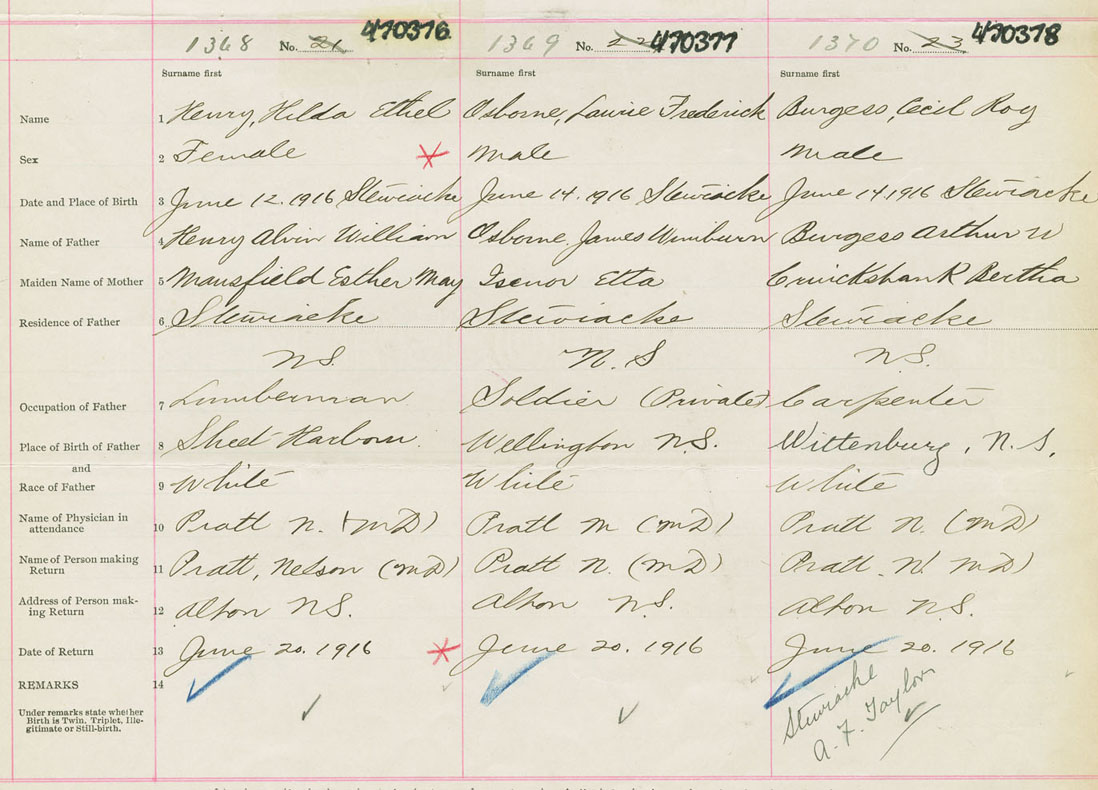 1368 No. 21 470376 1369 No. 22 470377 1370 No. 23 470378
Surname first Surname first Surname first
Name 1 Henry, Hilda Ethel Osborne, Laurie Frederick Burgess, Cecil Roy
Sex 2 Female Male Male
Date and Place of Birth 3 June 12. 1916 Stewiacke June 14. 1916 Stewiacke June 14 1916 Stewiacke
Name of Father 4 Henry Alvin William Osborne. James Wimburn Burgess Arthur W
Maiden Name of Mother 5 Mansfield Esther May Isenor Etta Cruickshank Bertha
Residence of Father 6 Stewiacke Stewiacke Stewiacke
N.S. N.S N.S.
Occupation of Father 7 Lumberman Soldier (Private) Carpenter
Place of Birth of Father 8 Sheet Harbour. Wellington N.S. Wittenburg, N.S,
and
Race of Father 9 White White White
Name of Physician in
attendance 10 Pratt N. (MD) Pratt N (MD) Pratt N. (MD)
Name of Person making
Return 11 Pratt, Nelson (MD) Pratt N. (MD) Pratt N. MD)
Address of Person mak-
ing Return 12 Alton N.S. Alton N.S. Alton N.S.
Date of Return 13 June 20. 1916 June 20. 1916 June 20. 1916
REMARKS 14
Under remarks state whether
Birth is Twin, Triplet, Ille-
gitimate or Still-birth.
Stewiacke
A. F. Taylor